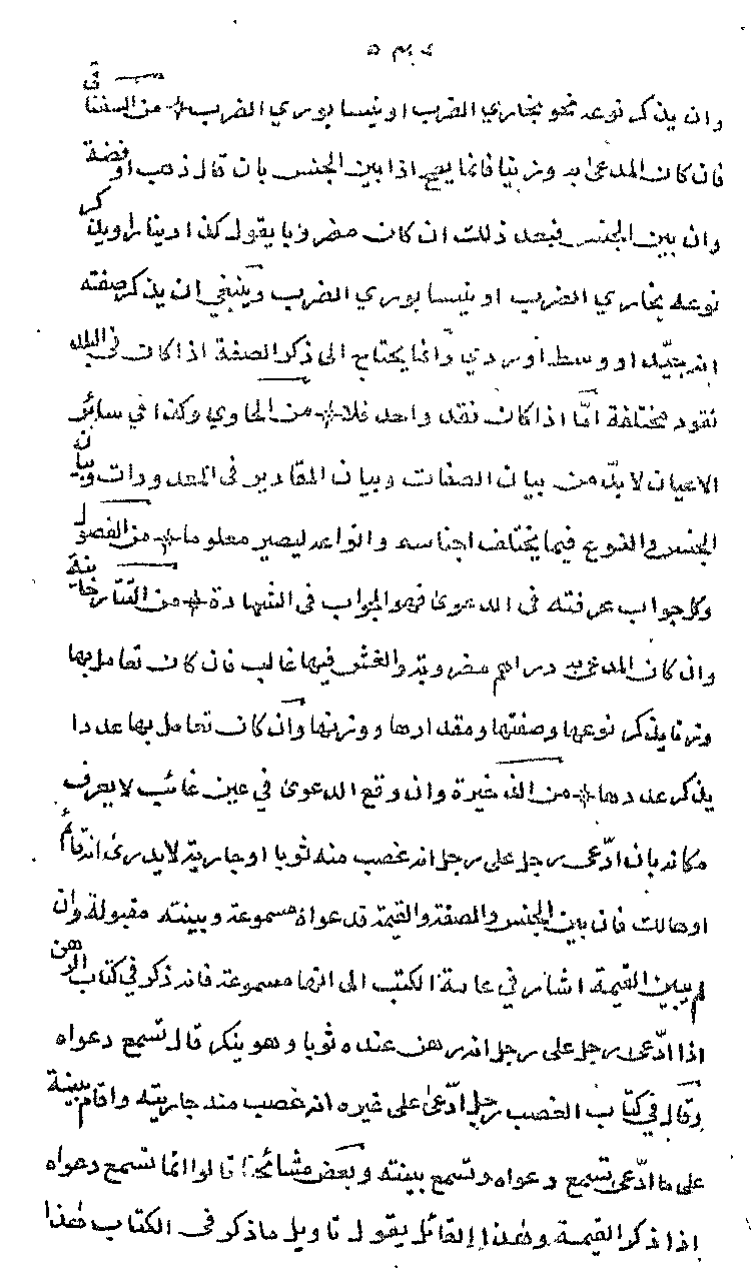 ٥٤٢
وان يذكر نوعه نحو بخاري الضرب او نيسابوري الضرب * من السغناقي
فان كان المدعى به وزنيا فانما يصح اذا بين الجنس بان قال ذهب او فضة
وان بين الجنس فبعد ذلك ان كان مضروبا يقول كذا دينارا ويذكر
نوعه بخاري الضرب او نيسابوري الضرب وينبغي ان يذكر صفته
انه جيّد او وسط او ردي وانما يحتاج الى ذكر الصفة اذا كان في البلد
نقود مختلفة امّا اذا كان نقد واحد فلا * من الحاوي وكذا في سائر
الاعيان لا بدّ من بيان الصفات وبيان المقادير فى المعدودات وبيان
الجنس والنوع فيما يختلف اجناسه وانواعه ليصير معلوما * من الفصول
وكل جواب عرفته فى الدعوى فهو الجواب فى الشهادة * من التتارخانية
وان كان المدعى به دراهم مضروبة والغش فيها غالب فان كان تعامل بها
وزنا يذكر نوعها وصفتها ومقدارها ووزنها وان كان تعامل بها عددا
يذكر عددها * من الذخيرة وان وقع الدعوى في عين غائب لا يعرف
مكانه بان ادّعى رجل على رجل انه غصب منه ثوبا او جارية لا يدرى انه قائم
او هالك فان بين الجنس والصفة والقيمة فدعواه مسموعة وبينته مقبولة وان
لم يبين القيمة اشار في عامة الكتب الى انها مسموعة فانه ذكر في كتاب الرهن
اذا ادّعى رجل على رجل انه رهن عنده ثوبا وهو ينكر قال تسمع دعواه
وقال في كتاب الغصب رجل ادّعى على غيره انه غصب منه جاريته واقام بينة
على ما ادّعى تسمع دعواه وتسمع بينته وبعض مشائخنا قالوا انما تسمع دعواه
اذا ذكر القيمة وهذا القائل يقول تاويل ما ذكر فى الكتاب هذا